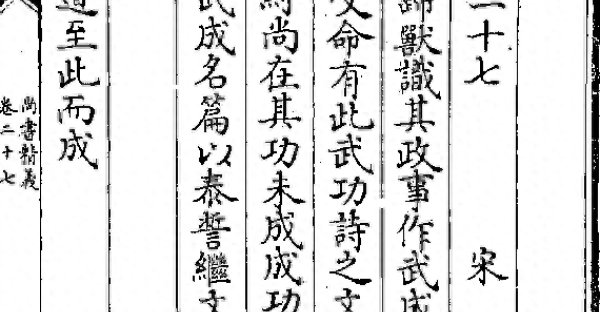 二十七 宋
歸獸識其政事作武成
文命有此武功詩之文
尚在其功未成成功
武成名篇以泰誓繼文
道至此而成
尚書精義
卷二十七